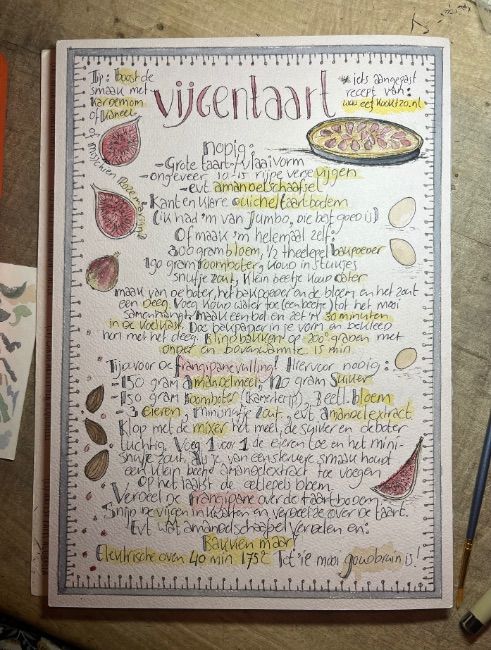 Tip: Boost de
smaak met
Kardemom
of Kaneel
of misschien Rozemarijn?
vijgentaart
* iets aangepast
recept van:
www.eefkooktzo.nl
nodig:
- Grote taart-/vlaaivorm
- ongeveer 10-15 rijpe verse vijgen
- evt amandelschaafsel
- Kant en klare quiche/taartbodem
(ik had 'm van Jumbo, die bet goed is)
Of maak 'm helemaal zelf:
300 gram bloem, 1/2 theelepel bakpoeder
190 gram roomboter, koud in stukjes
snufje zout, klein beetje koud water
maak van de boter, het bakpoeder en de bloem en het zout
een deeg. Voeg koud water toe (een beetje) tot het mooi
samenhangt. maak een bal en zet 'm 30 minuten
in de koelkast. Doe bakpapier in je vorm en bekleed
hem met het deeg. Blind bakken op 200° graden met
onder en bovenwarmte 15 min.
Tijd voor de frangipanevulling! Hiervoor nodig:
- 150 gram amandelmeel, 120 gram suiker
- 150 gram roomboter (kamertemp), 2 eetl. bloem
- 3 eieren, mini snufje zout, evt amandelextract
Klop met de mixer het meel, de suiker en de boter
luchtig. Voeg 1 voor 1 de eieren toe en het mini-
snufje zout. Als je van een sterke smaak houdt
een klein beetje amandelextract toe voegen
Op het laatst de eetlepels bloem.
Verdeel de frangipane over de taartbodem
Snijd de vijgen in kwarten en verdeel ze over de taart.
Evt wat amandelschaafsel verdelen en:
Bakken maar!
Elektrische oven 40 min 175° Tot 'ie mooi goudbruin is!